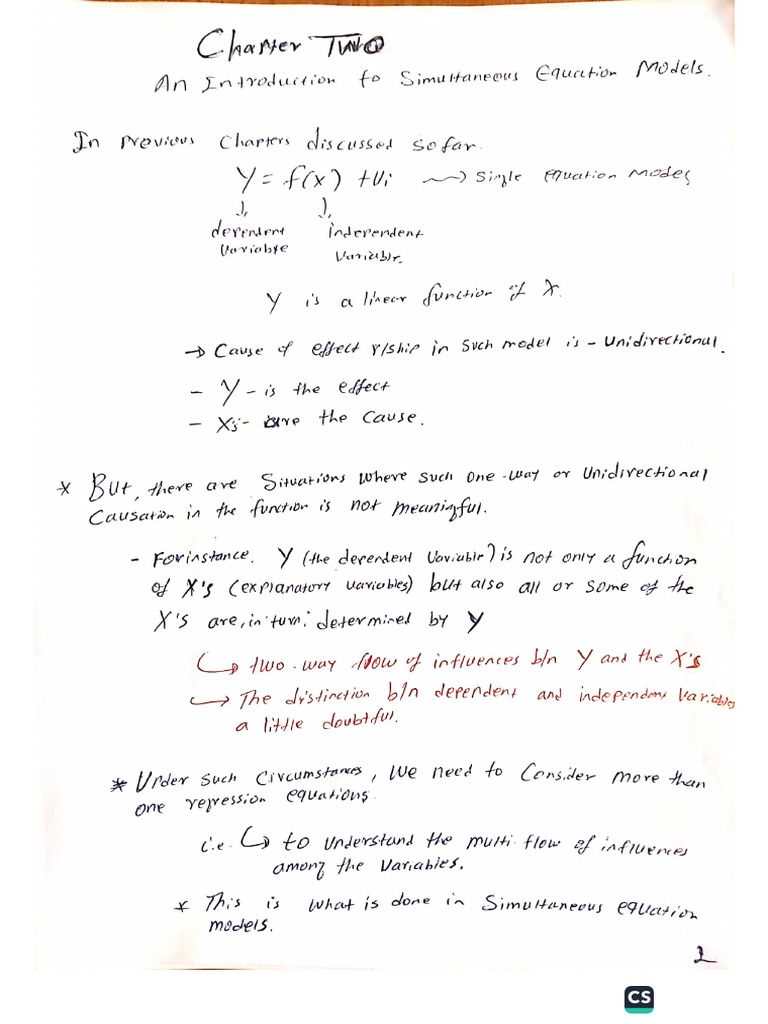 Chapter Two
An Introduction to Simultaneous Equation Models.
In previous Chapters discussed so far.
Y = f(x) + Ui ~~> Single equation models
↓ ↓
dependent independent
Variable Variable.
Y is a linear function of X.
→ Cause & effect r/ship in such model is - Unidirectional.
- Y - is the effect
- X's - are the Cause.
* But, there are Situations where such one-way or Unidirectional
Causation in the function is not meaningful.
- For instance. Y (the dependent Variable) is not only a function
of X's (explanatory variables) but also all or some of the
X's are, in turn, determined by Y
↳ two-way flow of influences b/n Y and the X's
→ The distinction b/n dependent and independent Variables
a little doubtful.
* Under such Circumstances, we need to Consider more than
one regression equations.
i.e. ↳ to understand the multi-flow of influences
among the Variables.
* This is what is done in Simultaneous equation
models.
1
CS